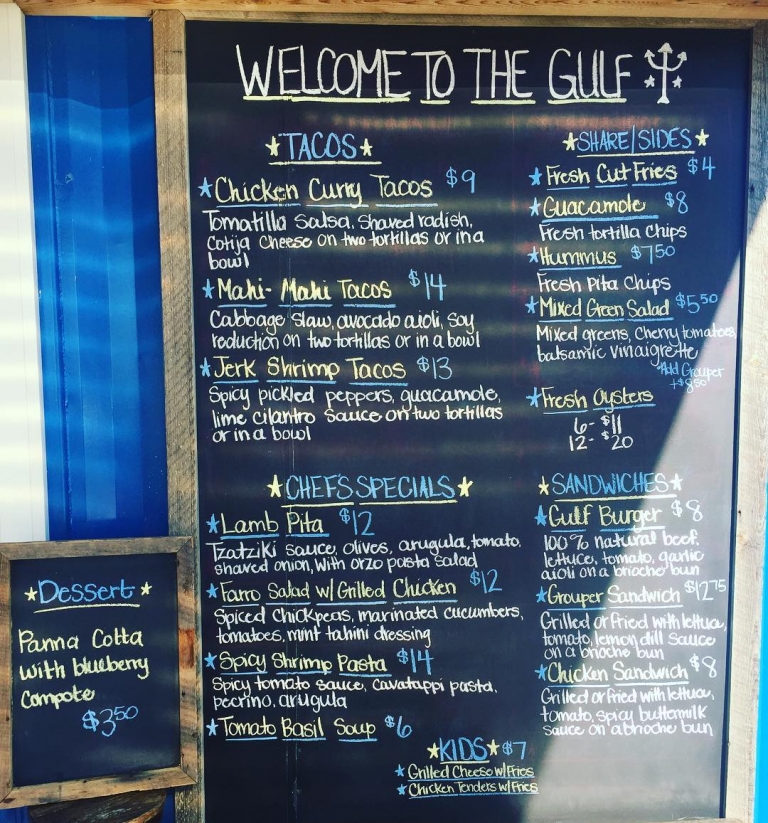 WELCOME TO THE GULF
TACOS
Chicken Curry Tacos $9
Tomatilla Salsa, Shaved radish,
Cotija Cheese on two tortillas or in a
bowl
Mahi-Mahi Tacos $14
Cabbage slaw, avocado aioli, soy
reduction on two tortillas or in a bowl
Jerk Shrimp Tacos $13
Spicy pickled peppers, guacamole,
lime cilantro sauce on two tortillas
or in a bowl
SHARE/SIDES
Fresh Cut Fries $4
Guacamole $8
Fresh tortilla chips
Hummus $7.50
Fresh Pita Chips
Mixed Green Salad $5.50
Mixed greens, Cherry tomatoes,
balsamic vinaigrette
*Add Grouper
+$8.50
Fresh Oysters
6- $11
12- $20
CHEF'S SPECIALS
Lamb Pita $12
Tzatziki sauce, olives, arugula, tomato,
shaved onion, with orzo pasta salad
Farro Salad w/ Grilled Chicken $12
Spiced Chickpeas, marinated cucumbers,
tomatoes, mint tahini dressing
Spicy Shrimp Pasta $14
Spicy tomato sauce, cavatappi pasta,
pecrino, arugula
Tomato Basil Soup $6
SANDWICHES
Gulf Burger $8
100% natural beef,
lettuce, tomato, garlic
aioli on a brioche bun
Grouper Sandwich $12.75
Grilled or fried with lettuce,
tomato, lemon dill sauce
on a brioche bun
Chicken Sandwich $8
Grilled or fried with lettuce,
tomato, spicy buttermilk
sauce on a brioche bun
KIDS $7
Grilled Cheese w/ Fries
Chicken Tenders w/ Fries
Dessert
Panna Cotta
with blueberry
Compote
$3.50